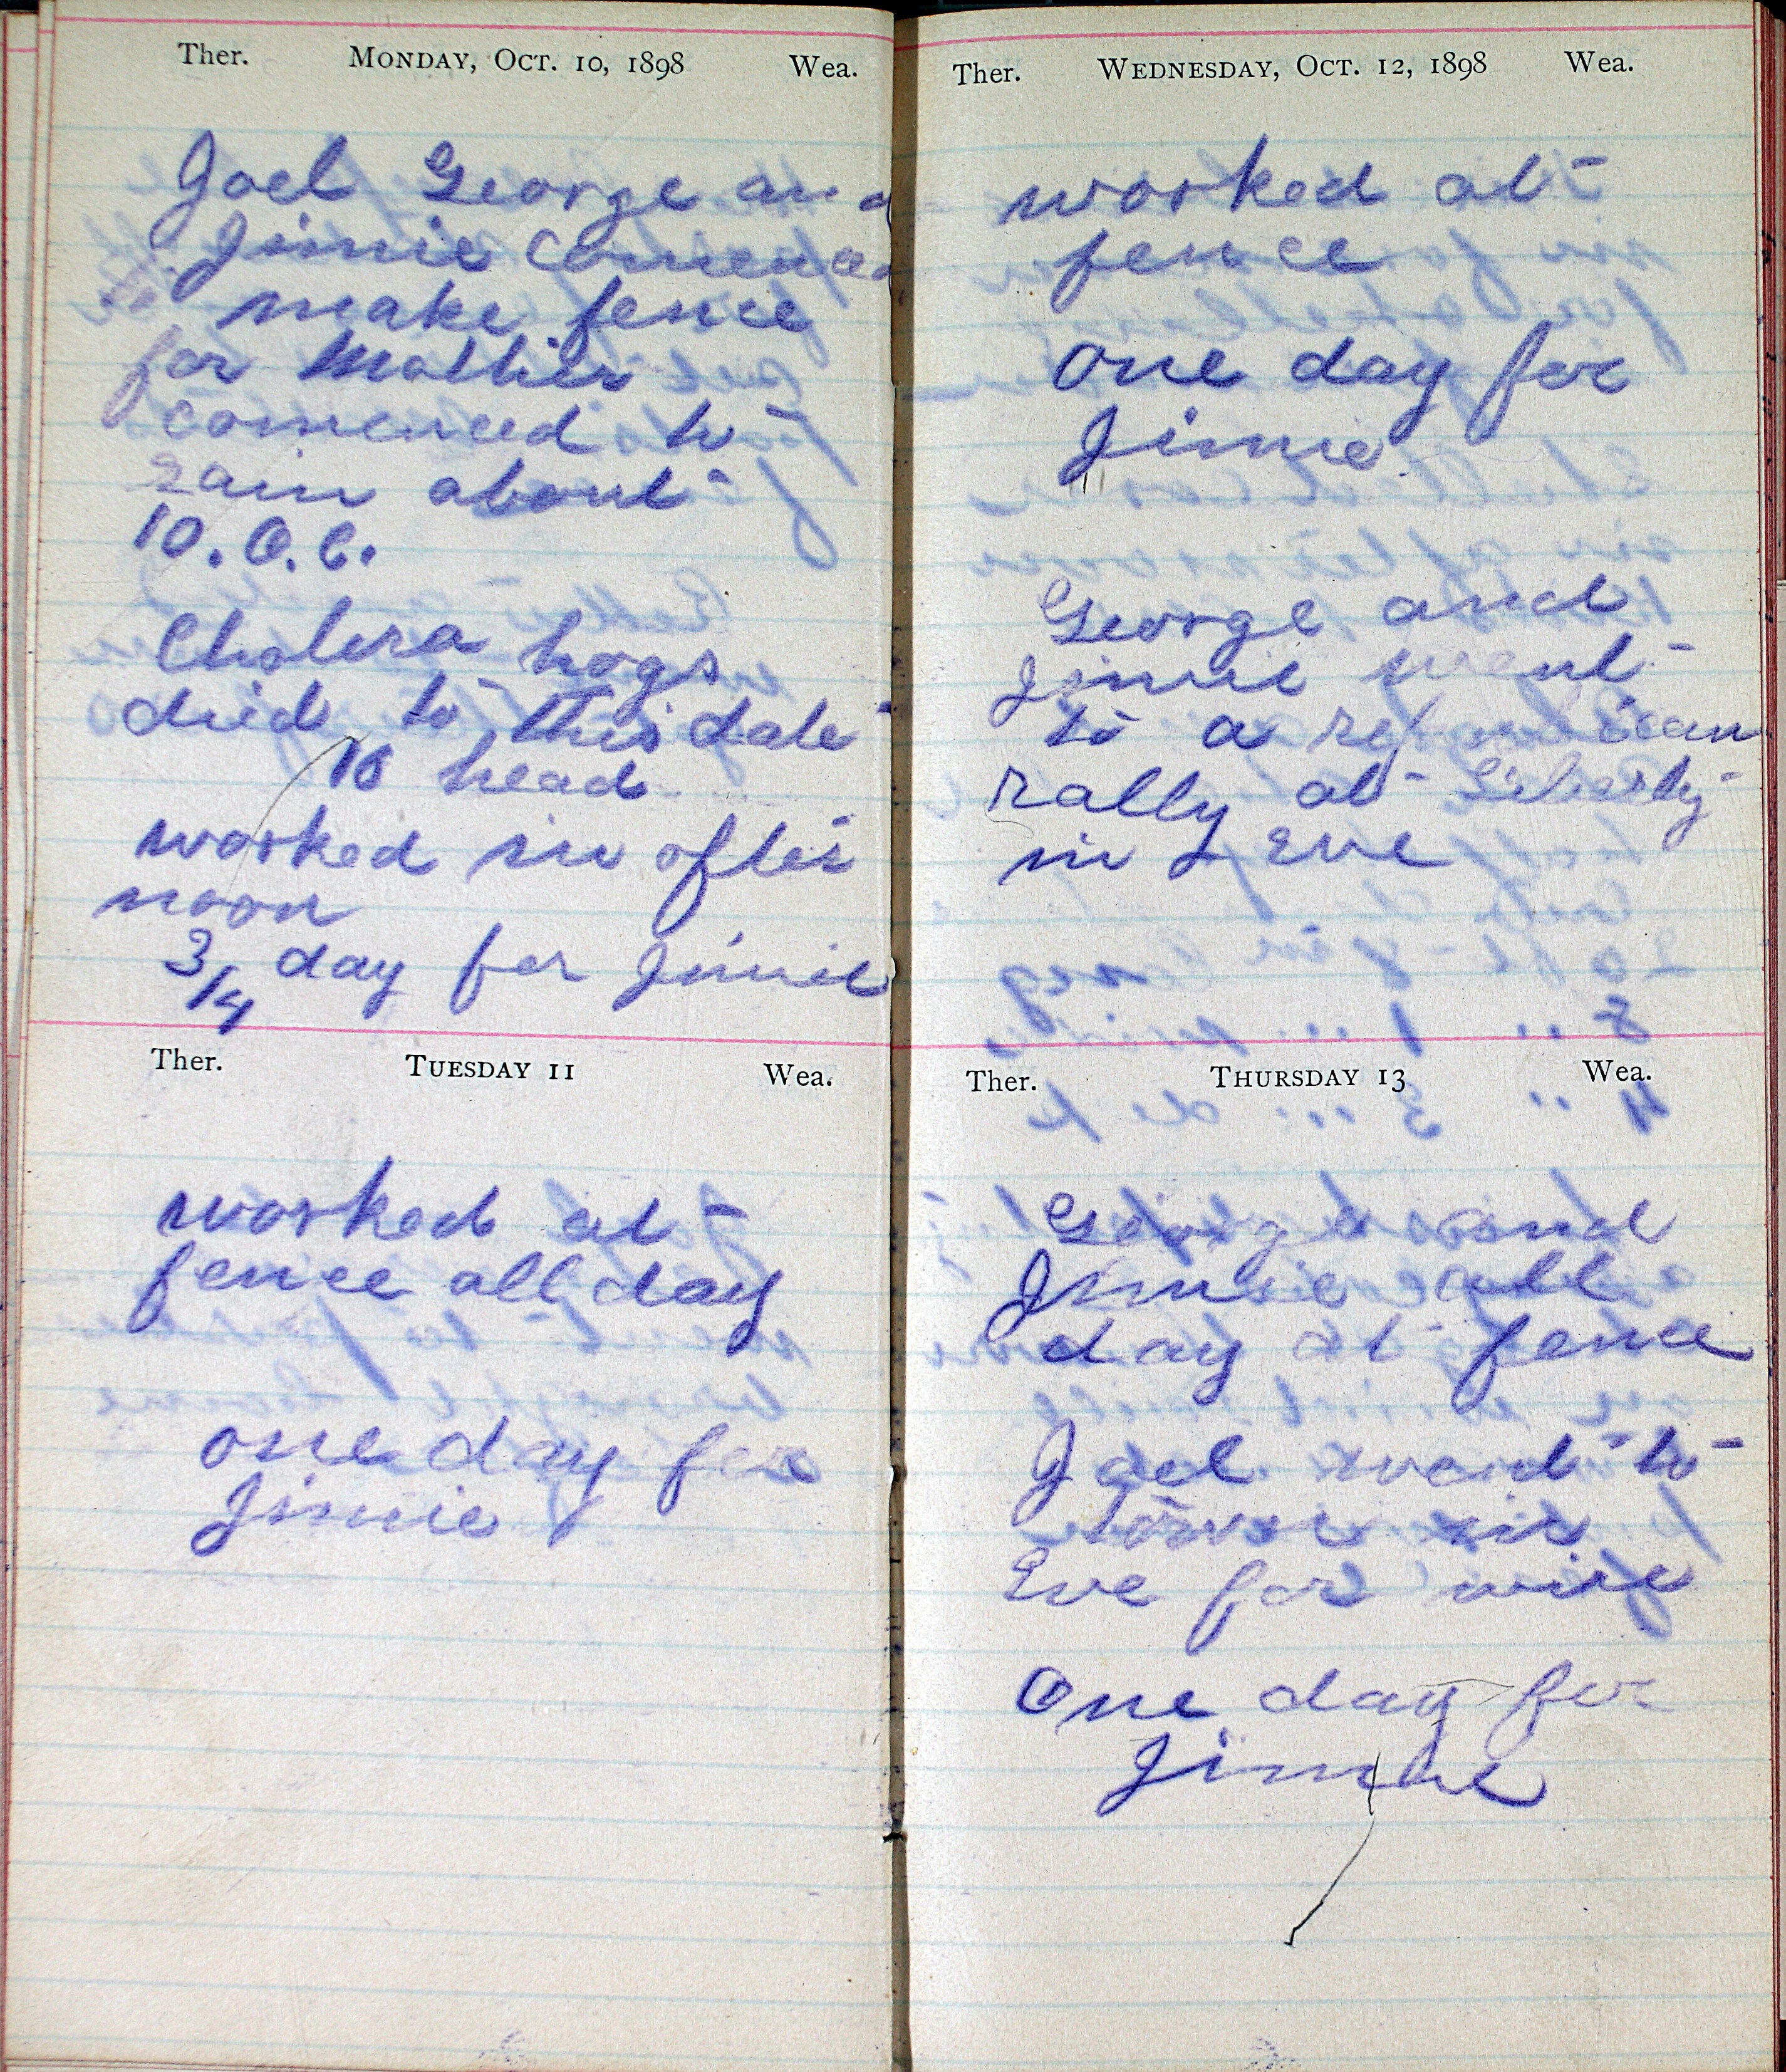 Ther. MONDAY, OCT. 10, 1898 Wea.
Joel George and
Jimie Comenced
to make fence
for Mother
comenced to
rain about
10. O. C.
Cholera hogs
died to this date
head
worked in after
noon
3/4 day for Jimie
Ther. TUESDAY 11 Wea.
worked at
fence all day
one day for
Jimie
Ther. WEDNESDAY, OCT. 12, 1898 Wea.
worked at
fence
One day for
Jimie
George and
Jimie went
to a republican
rally at Liberty
in Eve
Ther. THURSDAY 13 Wea.
George and
Jimie all
day at fence
Joel went to
town in
Eve for wire
One day for
Jimie